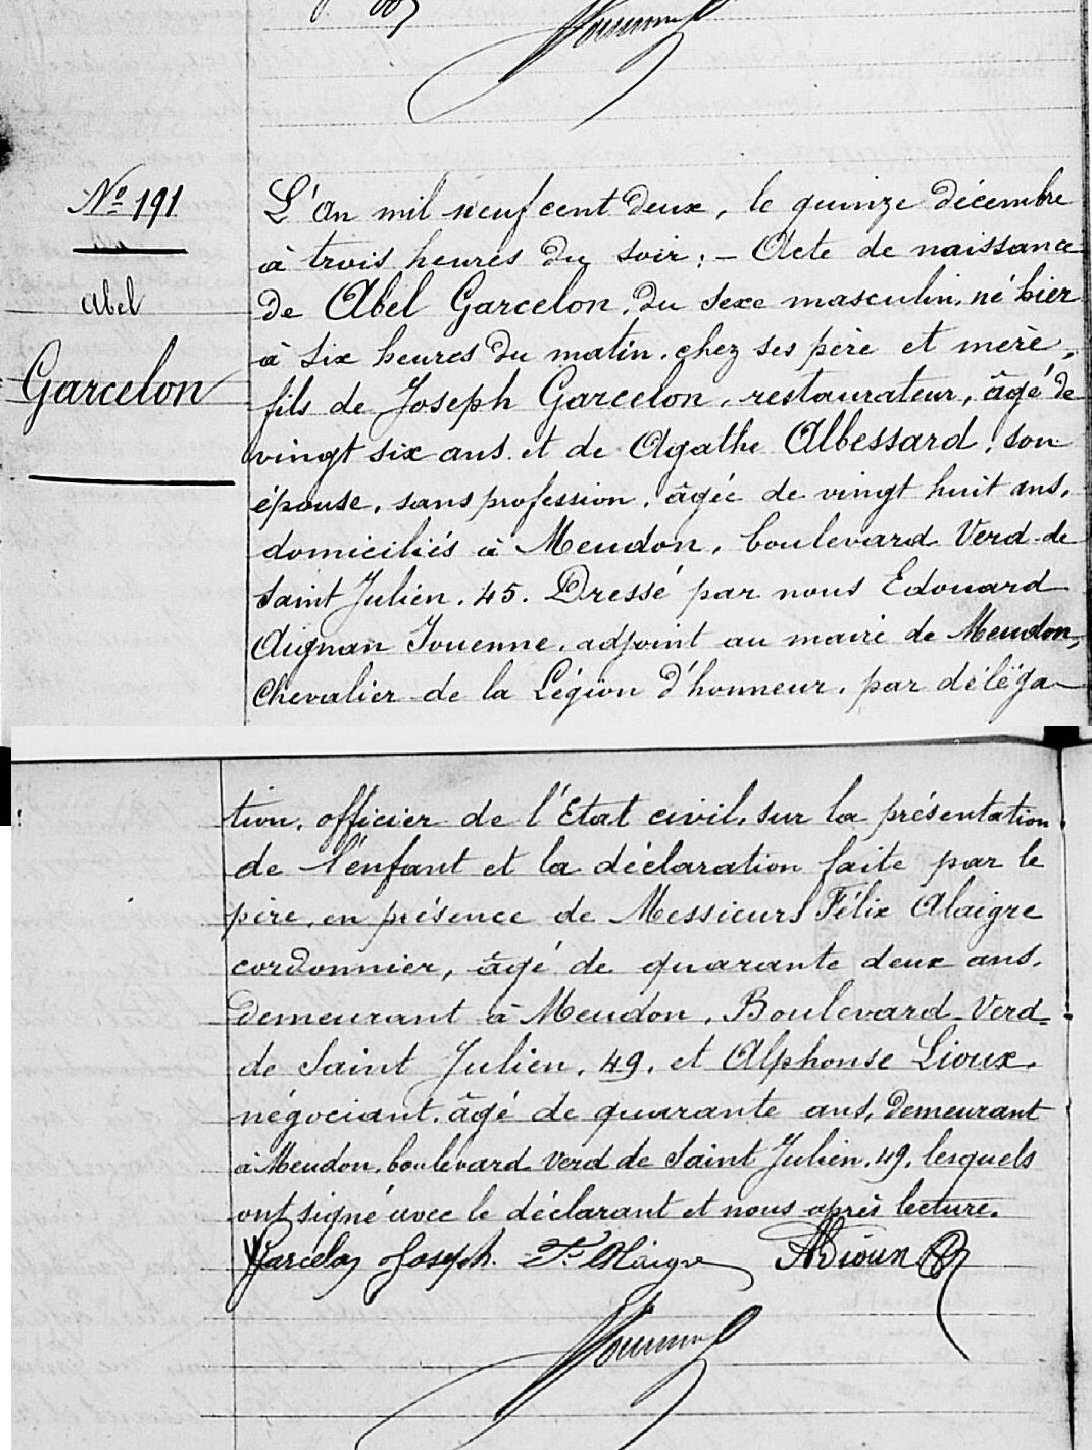 Nº 191
Abel
Garcelon
L'An mil neuf cent deux, le quinze décembre
à trois heures du soir; – Acte de naissance
de Abel Garcelon, du sexe masculin, né hier
à six heures du matin, chez ses père et mère,
fils de Joseph Garcelon, restaurateur, âgé de
vingt six ans et de Agathe Albessard, son
épouse, sans profession, âgée de vingt huit ans,
domiciliés à Meudon, boulevard Verd-de
Saint Julien, 45. Dressé par nous Edouard
Aignan Jouenne, adjoint au maire de Meudon,
Chevalier de la Légion d'honneur, par déléga-
tion, officier de l'Etat civil, sur la présentation
de l'enfant et la déclaration faite par le
père, en présence de Messieurs Félix Alaigre
cordonnier, âgé de quarante deux ans,
demeurant à Meudon, Boulevard Verd-
de Saint Julien, 49, et Alphonse Lioux,
négociant, âgé de quarante ans, demeurant
à Meudon, boulevard Verd de Saint Julien, 49, lesquels
ont signé avec le déclarant et nous après lecture.
Garcelon Joseph. F. Alaigre